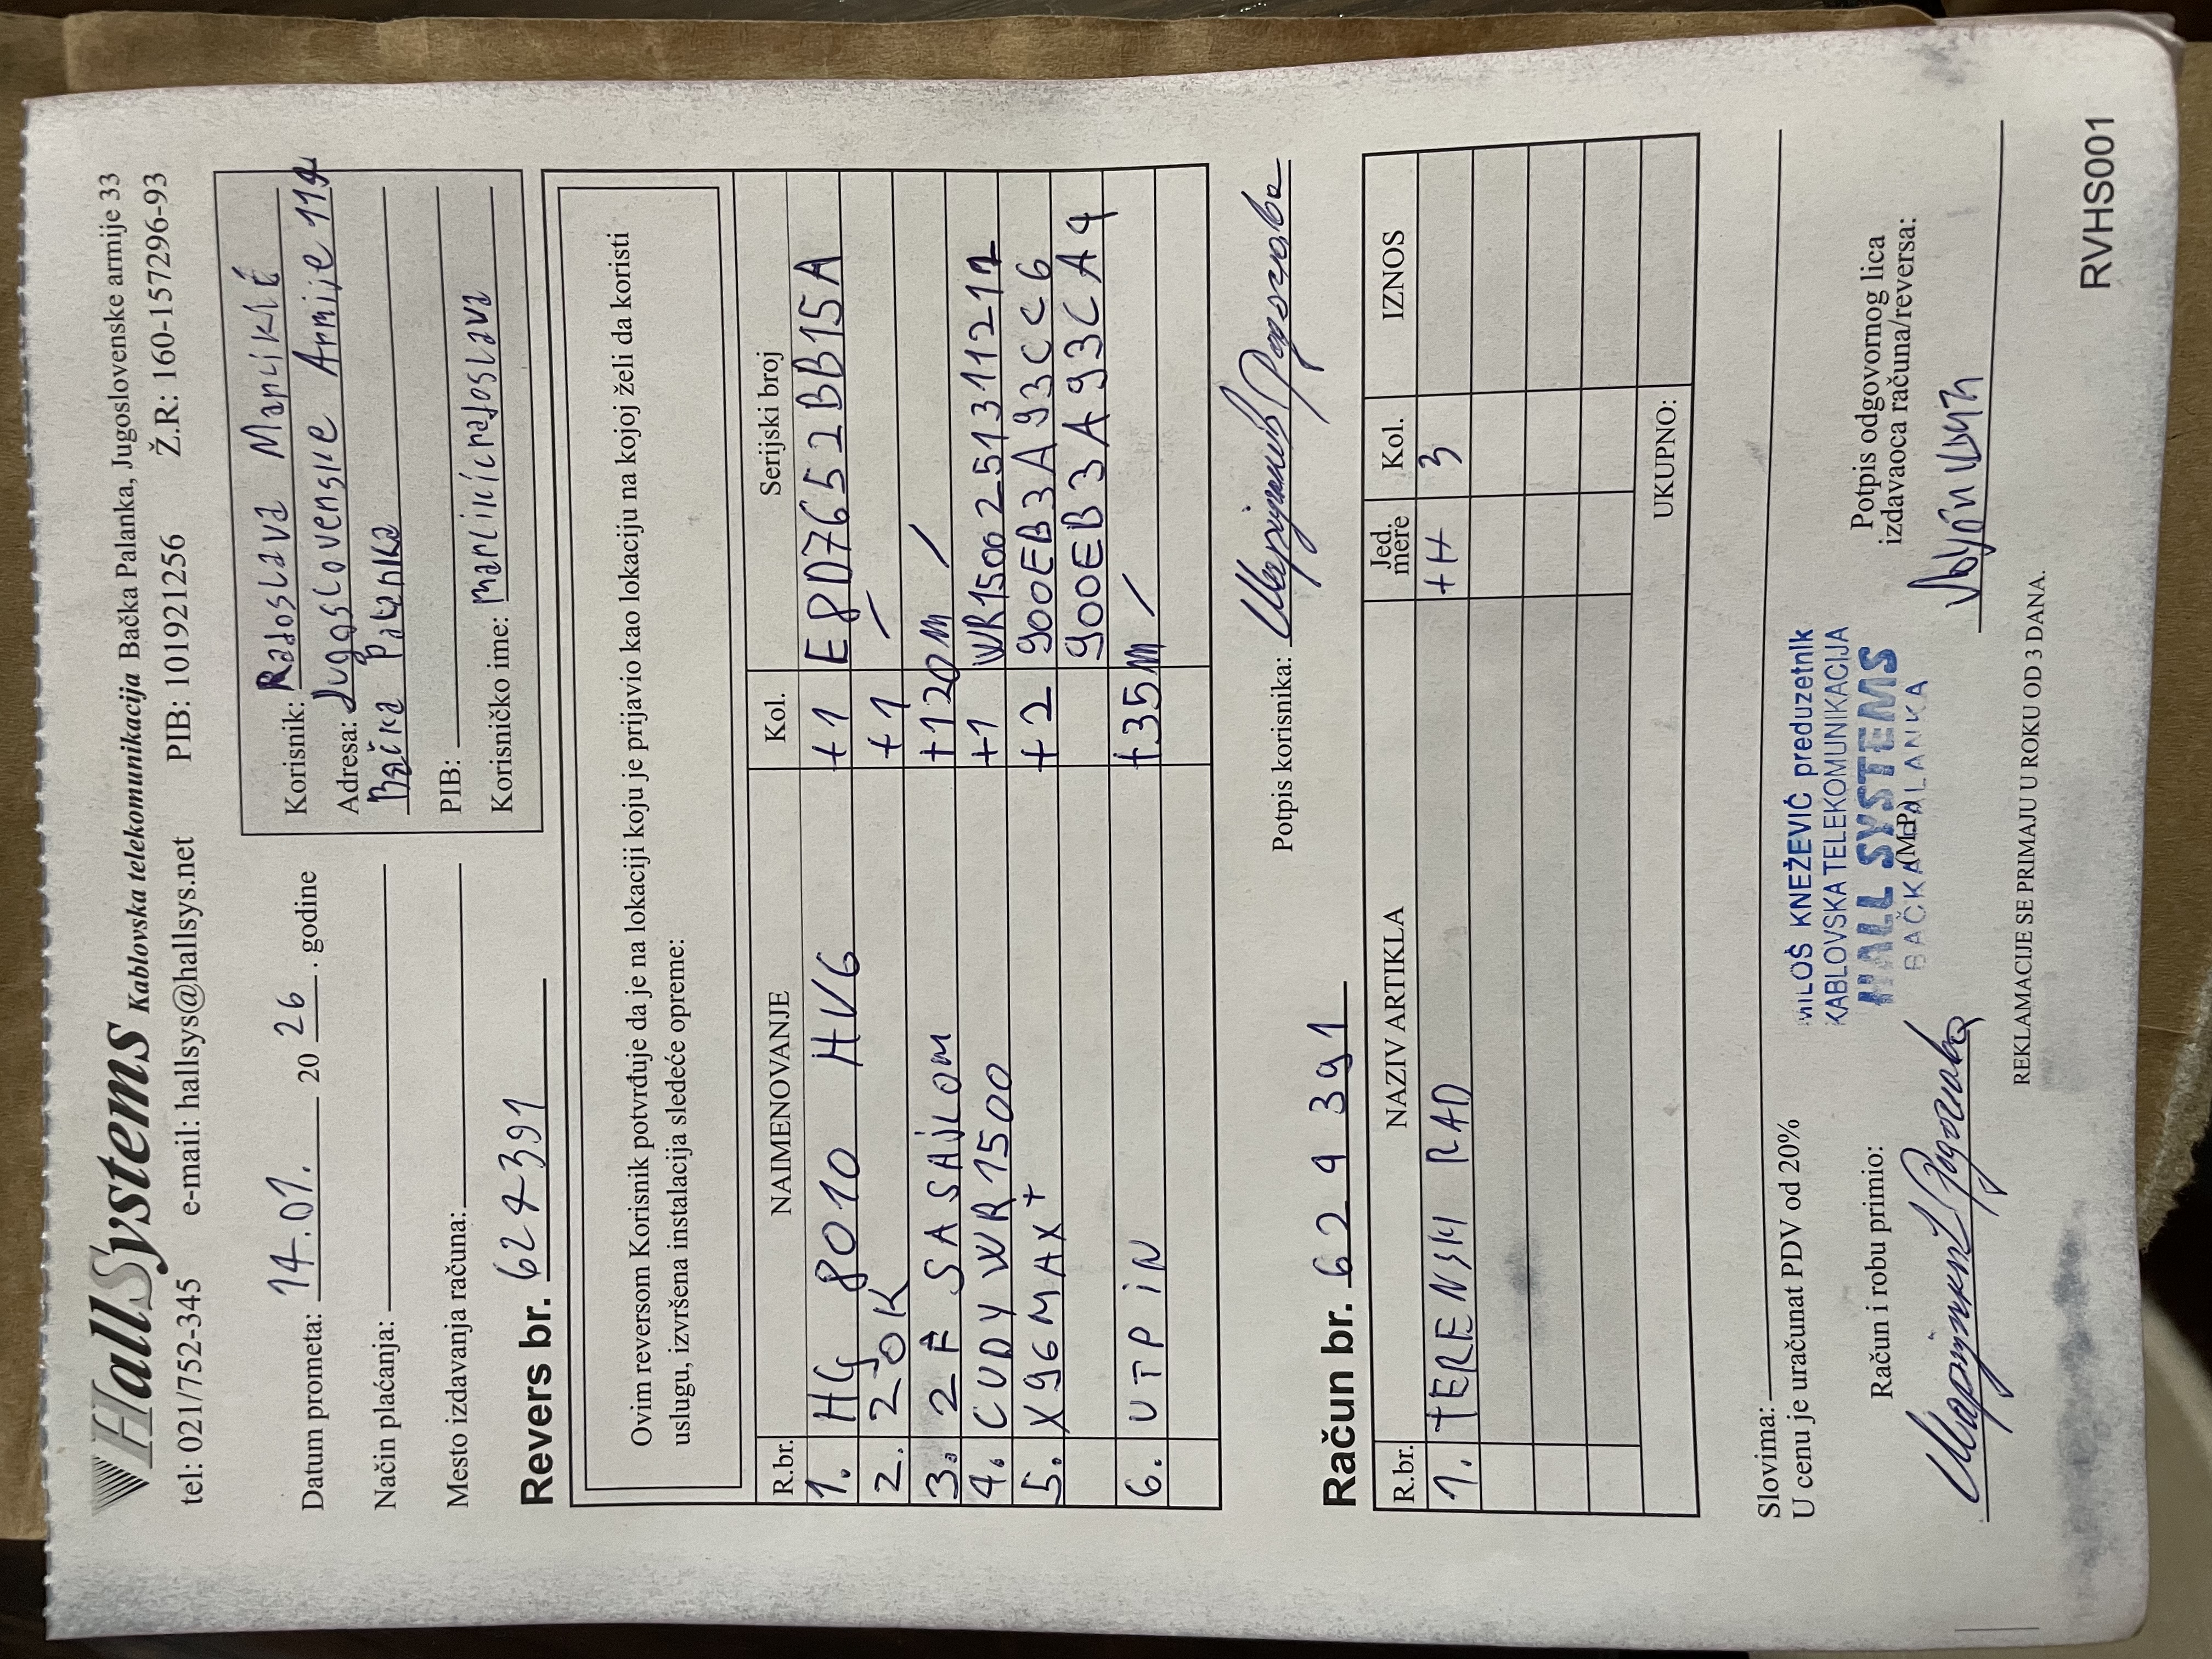 HallSystems Kablovska telekomunikacija Bačka Palanka, Jugoslovenske armije 33
tel: 021/752-345 e-mail: hallsys@hallsys.net PIB: 101921256 Ž.R: 160-157296-93
Datum prometa: 14.01. 20 26. godine
Način plaćanja:
Mesto izdavanja računa:
Korisnik: Radoslava
Adresa: Jugoslovenske Armije 114
Bačka Palanka
PIB:
Korisničko ime:
Revers br. 624391
Ovim reversom Korisnik potvrđuje da je na lokaciji koju je prijavio kao lokaciju na kojoj želi da koristi
uslugu, izvršena instalacija sledeće opreme:
R.br. NAIMENOVANJE Kol. Serijski broj
1. HG 8010 HV6 +1 E8D7652BB15A
2. ZOK +1 /
3. 2F SA SAJLOM +120m /
4. CUDY WR1500 +1 WR1500251311211
5. X96MAX+ +2 900EB3A93CC6
900EB3A93CA4
6. UTP IN +35m /
Potpis korisnika:
Račun br. 624391
R.br. NAZIV ARTIKLA Jed. mere Kol. IZNOS
1. TERENSKI RAD +H 3
UKUPNO:
Slovima:
U cenu je uračunat PDV od 20%
Račun i robu primio:
MILOŠ KNEŽEVIĆ preduzetnik
KABLOVSKA TELEKOMUNIKACIJA
HALL SYSTEMS
(M.P.)
BAČKA PALANKA
Potpis odgovornog lica
izdavaoca računa/reversa:
REKLAMACIJE SE PRIMAJU U ROKU OD 3 DANA.
RVHS001